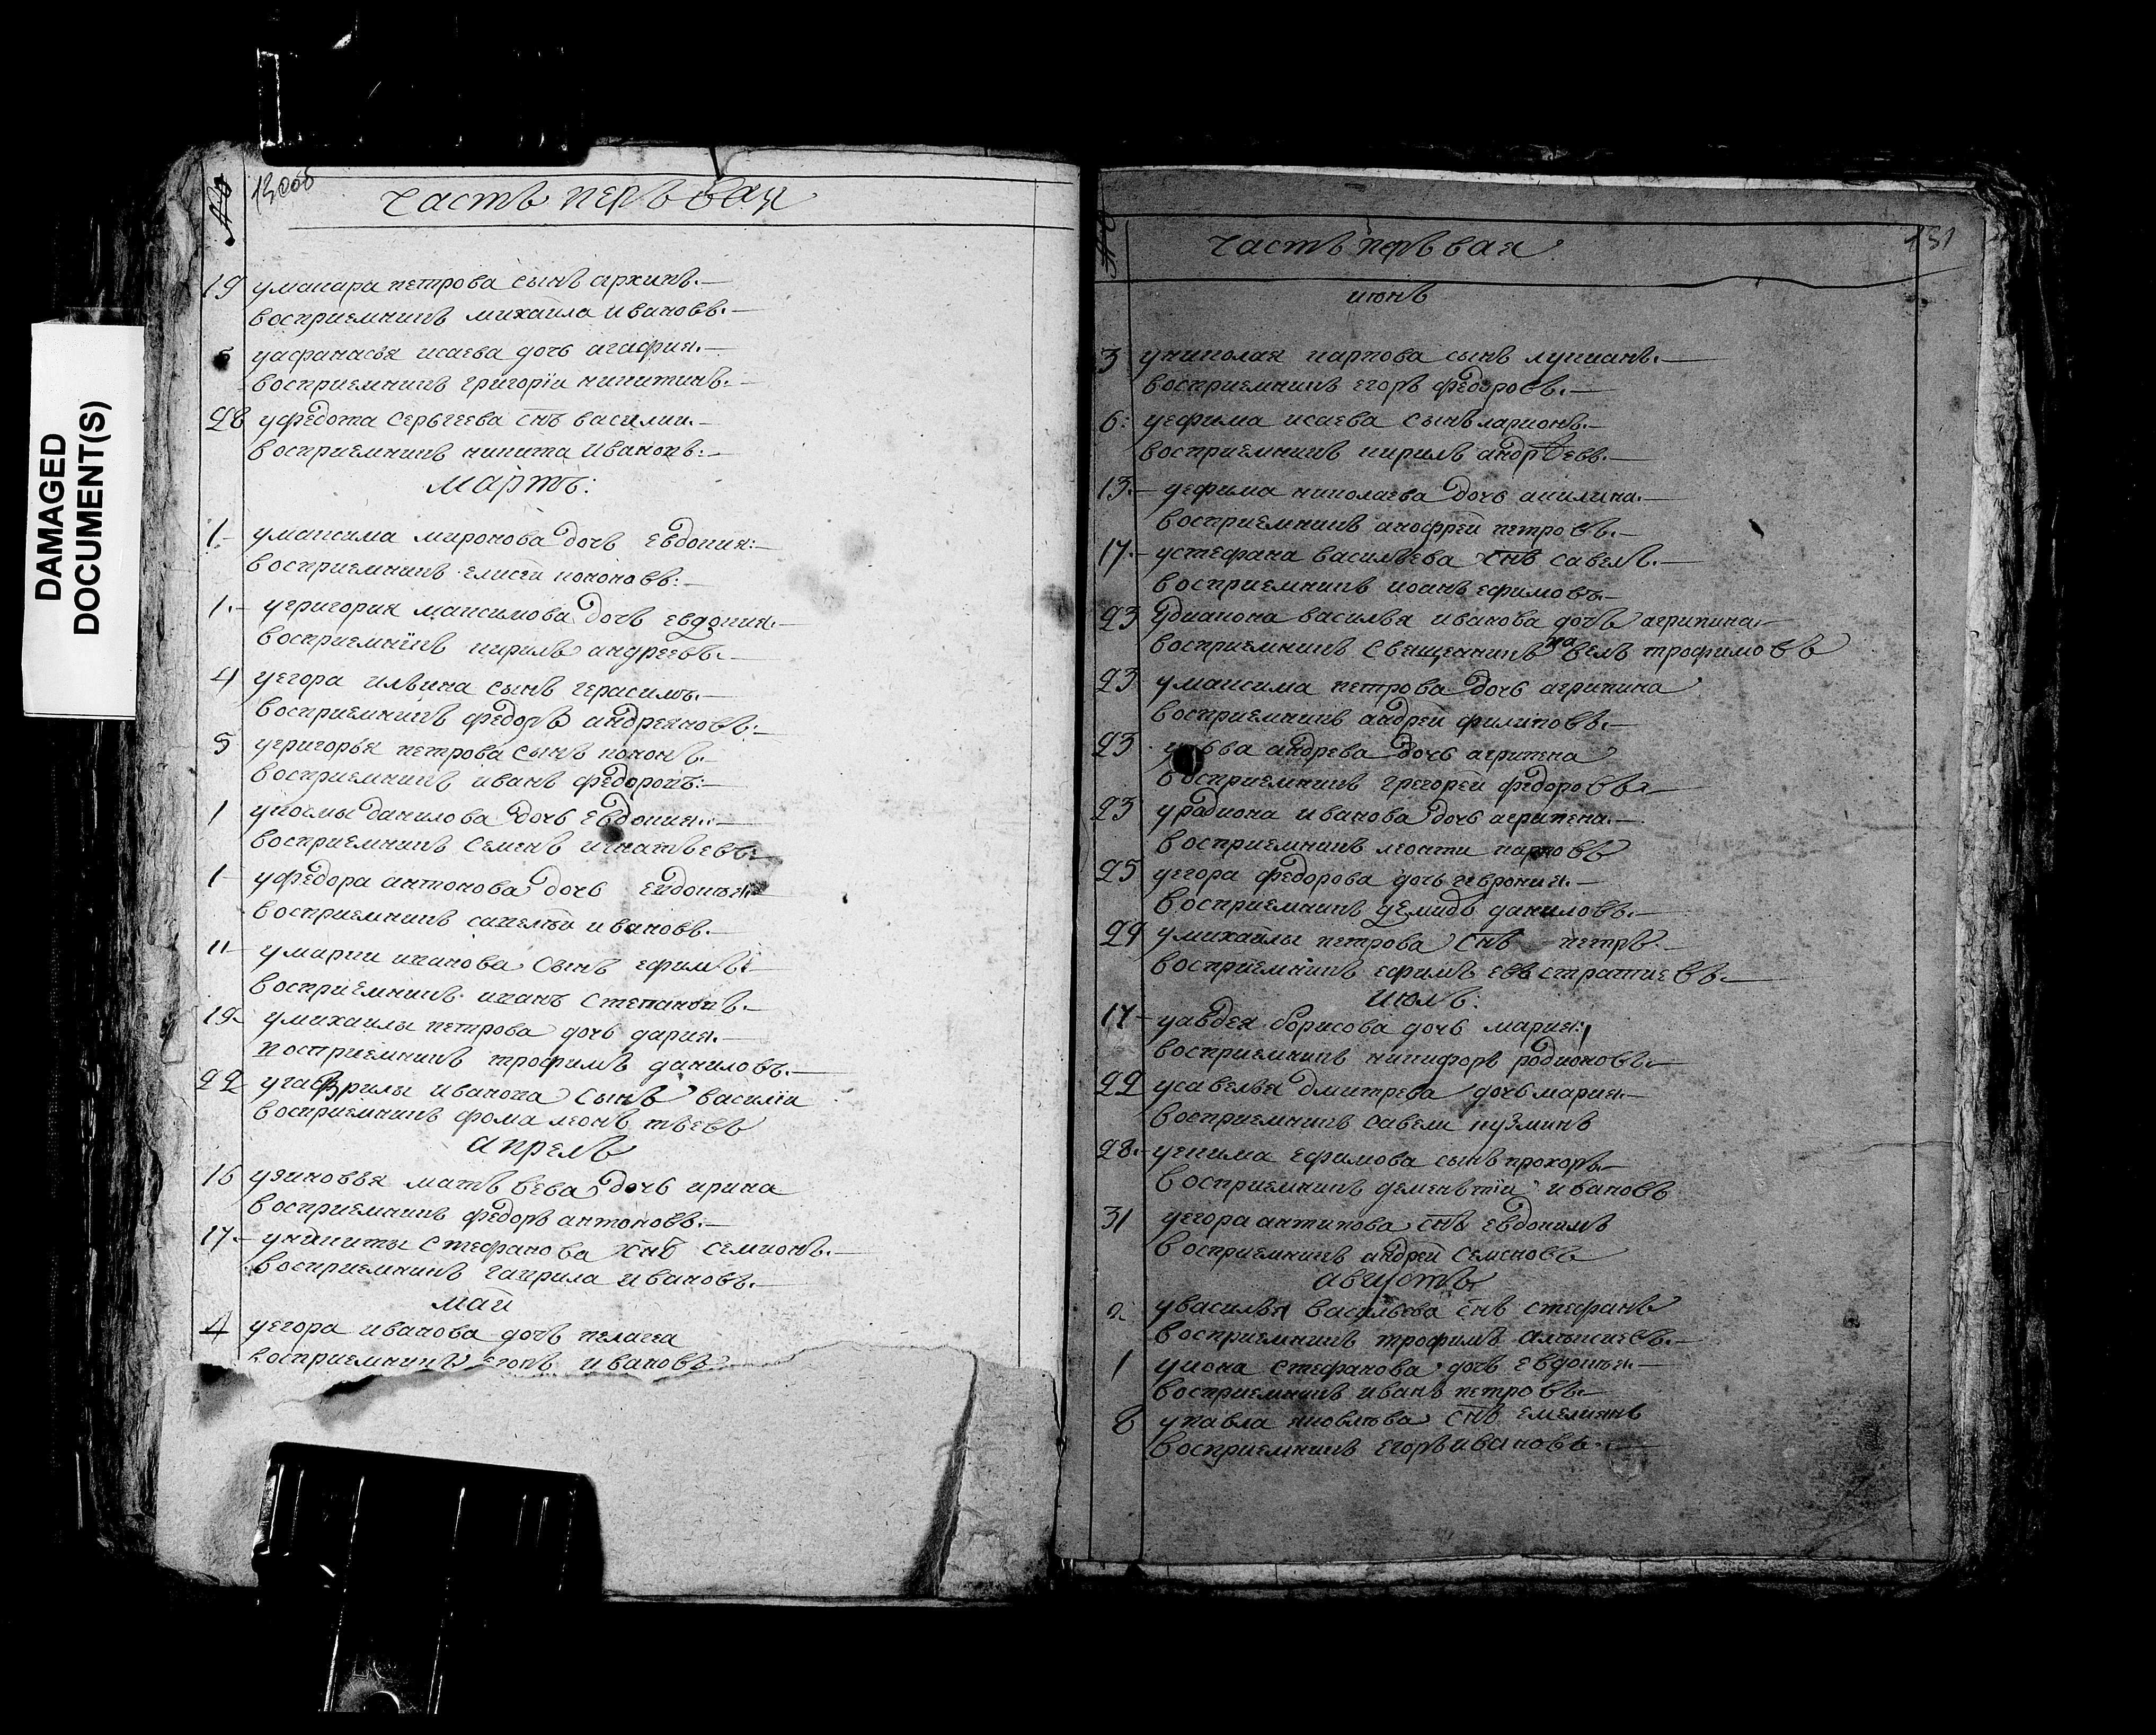 DAMAGED
DOCUMENT(S)
130об
часть перьвая
19 умакара петрова сынъ архипъ.
восприемникъ михаила ивановъ.
уафанасья исаева дочь агафия.
восприемникъ григорїи никитинъ.
28 уфедота серьгеева снъ василии.
восприемникъ никита ивановъ.
мартъ:
1 умаксима миронова дочь евдокия:
восприемникъ елисеи кононовъ:
1. угригория максимова дочь евдокия.
восприемникъ кирилъ андреевъ.
4 уегора ильина сынъ герасимъ.
восприемникъ федоръ андреяновъ:
5 угригорья петрова сынъ конон.
восприемникъ иванъ федоровъ:
1 укосмы данилова дочь евдокия.
восприемникъ семенъ игнатьевъ
1 уфедора антонова дочь евдокья.
восприемникъ савелъи ивановъ.
11 умарки иванова сынъ ефимъ:
восприемникъ иванъ степановъ.
19. умихаилы петрова дочь дария.
восприемникъ трофимъ даниловъ.
22 угаврилы иванова сынъ василїи
восприемникъ фома леонтьевъ
апрель
16 узиновья матьвева дочь ирина
восприемникъ федоръ антоновъ.
17. уникиты стефанова снъ семионъ.
восприемникъ гаврила ивановъ.
маи
4 уегора иванова дочь пелагеа
восприемникъ егоръ ивановъ
131
часть перьвая
июнь
3 униколая карпова сынъ лукианъ.
восприемникъ егоръ федоровъ.
6: уефима исаева сынъ ларионъ.
восприемникъ кирилъ андрѣевъ.
13. уефима николаева дочь акилина.
восприемникъ анофреи петровъ.
17. устефана васильева снъ савелъ.
восприемникъ иоанъ ефимовъ.
23 удиакона василья иванова дочь агрипина
восприемникъ священникъ павелъ трофимовъ
23 умаксима петрова дочь агрипина
восприемникъ андреи филиповъ.
23 андрева дочь агрипена
восприемникъ грегореи федоровъ.
23 урадиона иванова дочь агрипена.
восприемникъ леонти карповъ
25 уегора федорова дочь феврония.
восприемникъ демидъ даниловъ.
29 умихаилы петрова снъ петръ.
восприемникъ ефимъ евъстратиевъ.
июль:
17 уавдея борисова дочь мария.
восприемникъ никифоръ родионовъ.
22 усавелья дмитрева дочь мария.
восприемникъ савели кузминъ
28. уекима ефимова сынъ прохоръ.
восприемникъ дементїи ивановъ
31 уегора антипова снъ евдокимъ
восприемникъ андреи семеновъ
августъ
2 увасилья васильева снъ стефанъ
восприемникъ трофимъ алексиевъ.
1 уиона стефанова дочь евдокья.
восприемникъ иванъ петровъ.
8 упавла яковлѣва снъ емелиянъ
восприемникъ егоръ ивановъ.